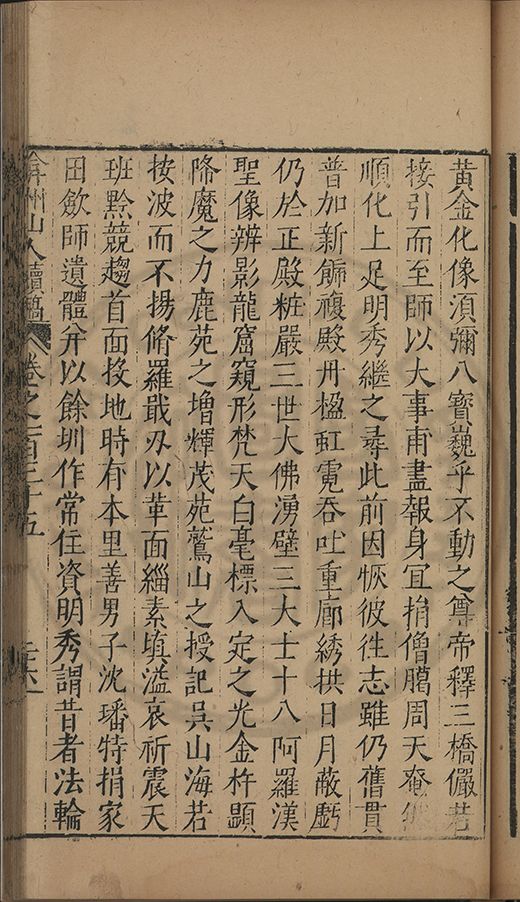 黃金化像湏彌八寳巍乎不動之尊帝釋三橋儼若
接引而至師以大事甫盡報身冝捐僧臈周天奄
順化上足明秀繼之尋此前因恢彼徃志雖仍舊貫
普加新餙複殿丹楹虹霓吞吐重廊綉拱日月蔽虧
仍於正殿粧嚴三世大佛湧壁三大士十八阿羅漢
聖像辨影龍窟窺形梵天白毫標入定之光金杵顯
降魔之力鹿苑之増輝茂苑鷲山之授記吳山海若
按波而不揚脩羅戢刄以革面緇素塡溢哀祈震天
班黙競趨首面投地時有本里善男子沈璠特捐家
田歛師遺體分以餘圳作常住資明秀謂昔者法輪
弇州山人續稿 卷之一百三十五